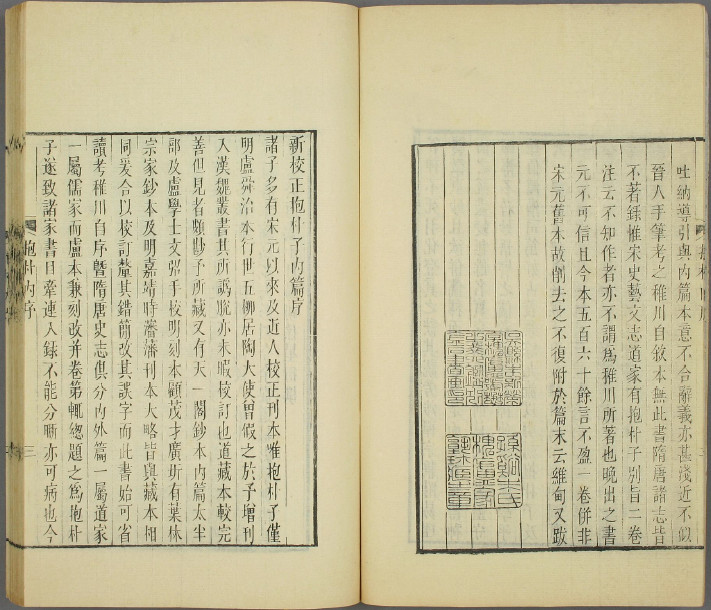 吐納導引與內篇本意不合辭義亦甚淺近不似
晉人手筆考之稚川自敘本無此書隋唐諸志皆
不著錄惟宋史藝文志道家有抱朴子別旨二卷
注云不知作者亦不謂爲稚川所著也晚出之書
元不可信且今本五百六十餘言不盈一卷併非
宋元舊本故削去之不復附於篇末云維甸又跋
新校正抱朴子內篇序
諸子多有宋元以來及近人校正刊本唯抱朴子僅
明盧舜治本行世五柳居陶大使曾假之於予增刊
入漢魏叢書其所譌脫亦未暇校訂也道藏本較完
善但見者頗尟予所藏又有天一閣鈔本內篇太半
部及盧學士文弨手校明刻本顧茂才廣圻有葉林
宗家鈔本及明嘉靖時瀋藩刊本大略皆與藏本相
同爰合以校訂釐其錯簡改其誤字而此書始可省
讀考稚川自序曁隋唐史志俱分內外篇一屬道家
一屬儒家而盧本兼刻改并卷第輒總題之爲抱朴
子遂致諸家書目牽連入錄不能分晰亦可病也今
抱朴內序
三